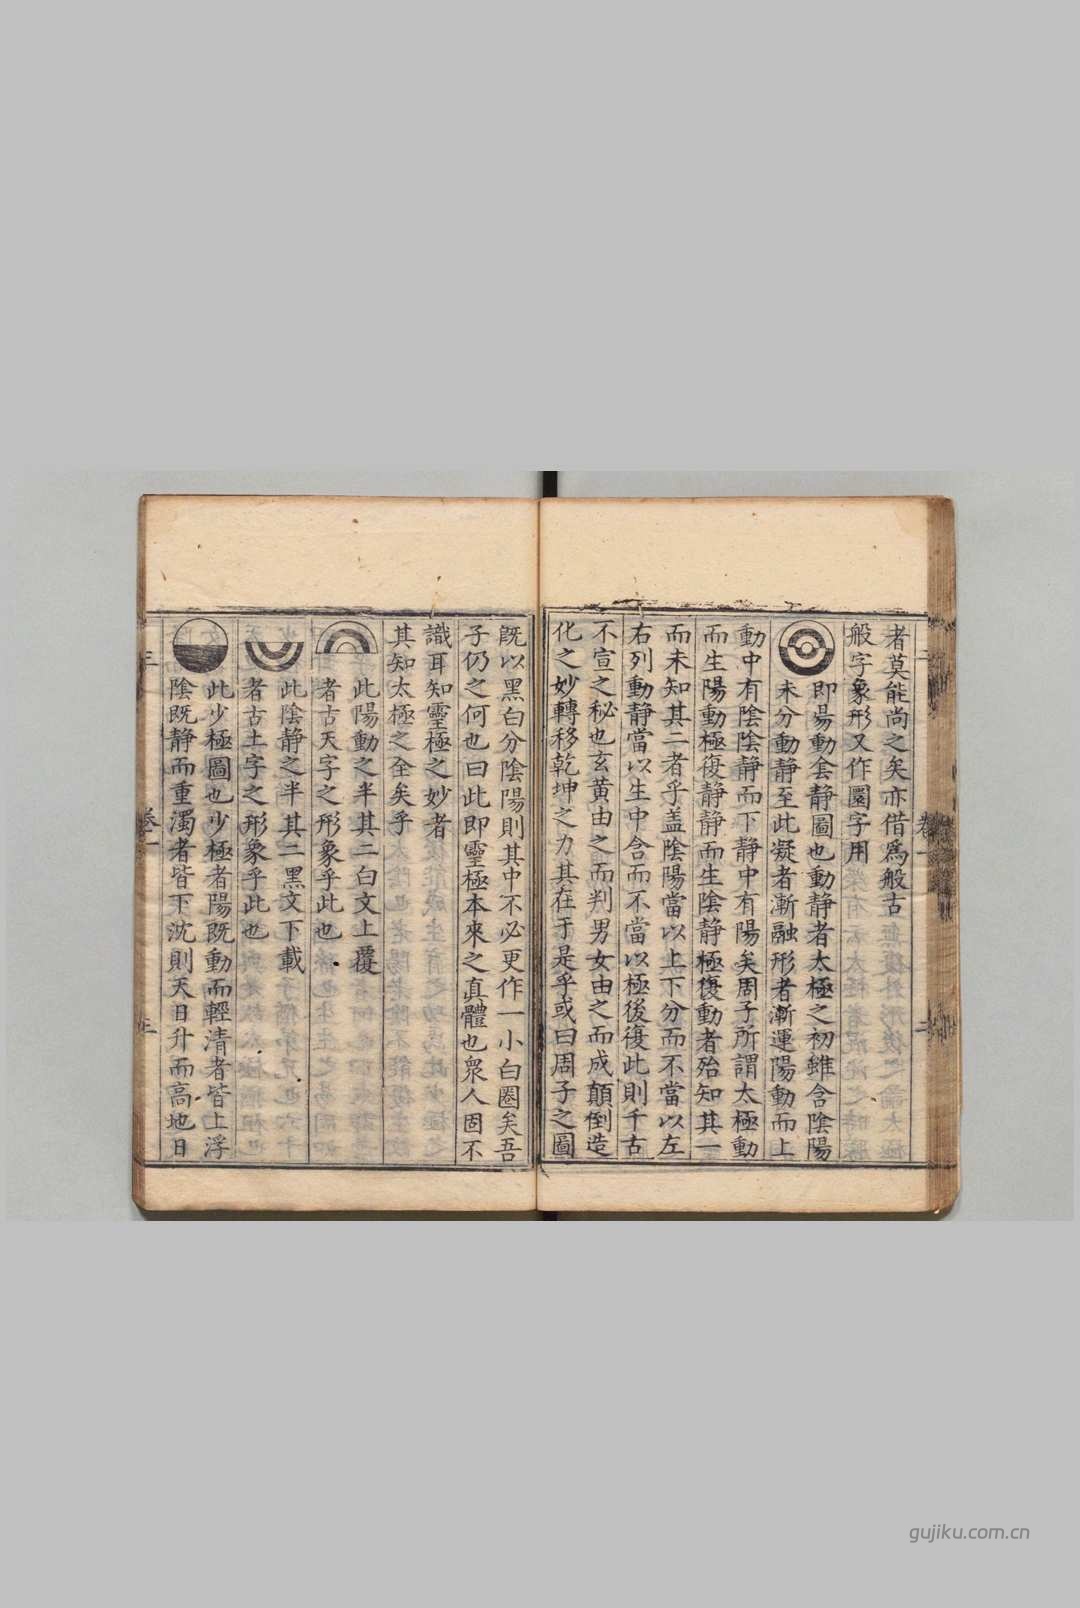 者莫能尚之矣亦借爲般古
般字象形又作圜字用
即昜動套静圖也動静者太極之初雖含陰陽
未分動静至此凝者漸融形者漸運陽動而上
動中有陰陰静而下静中有陽矣周子所謂太極動
而生陽動極復静静而生陰静極復動者殆知其一
而未知其二者乎盖陰陽當以上下分而不當以左
右列動静當以生中含而不當以極後復此則千古
不宣之秘也玄黄由之而判男女由之而成顛倒造
化之妙轉移乾坤之力其在于是乎或曰周子之圖
既以黑白分陰陽則其中不必更作一小白圈矣吾
子仍之何也曰此即靈極本來之真體也衆人固不
識耳知靈極之妙者
其知太極之全矣乎
此陽動之半其二白文上覆
者古天字之形象乎此也
此陰静之半其二黑文下載
者古土字之形象乎此也
此少極圖也少極者陽既動而輕清者皆上浮
陰既静而重濁者皆下沈則天日升而高地日
卷一
三
gujiku.com.cn